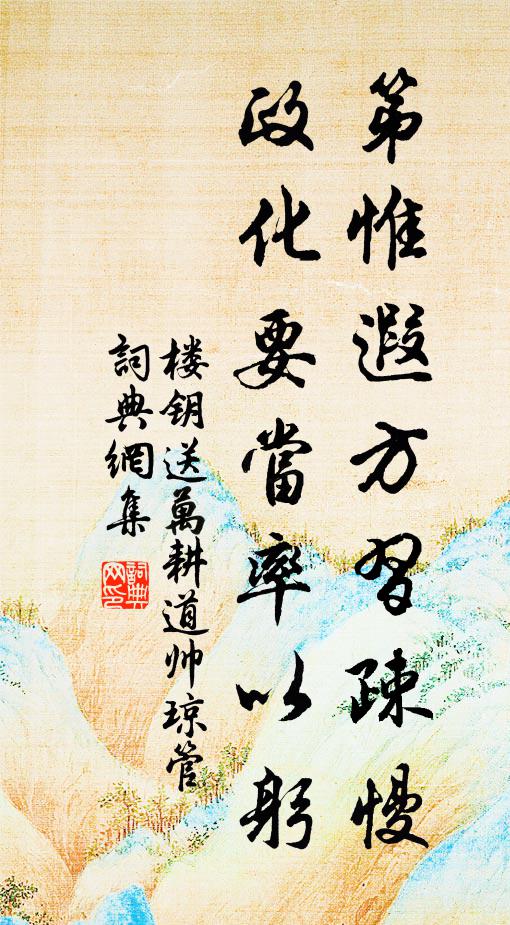 第惟遐方習疎慢
政化要當率以躬
楼钥送萬耕道帅琼管
詞典網集
詞典
网印